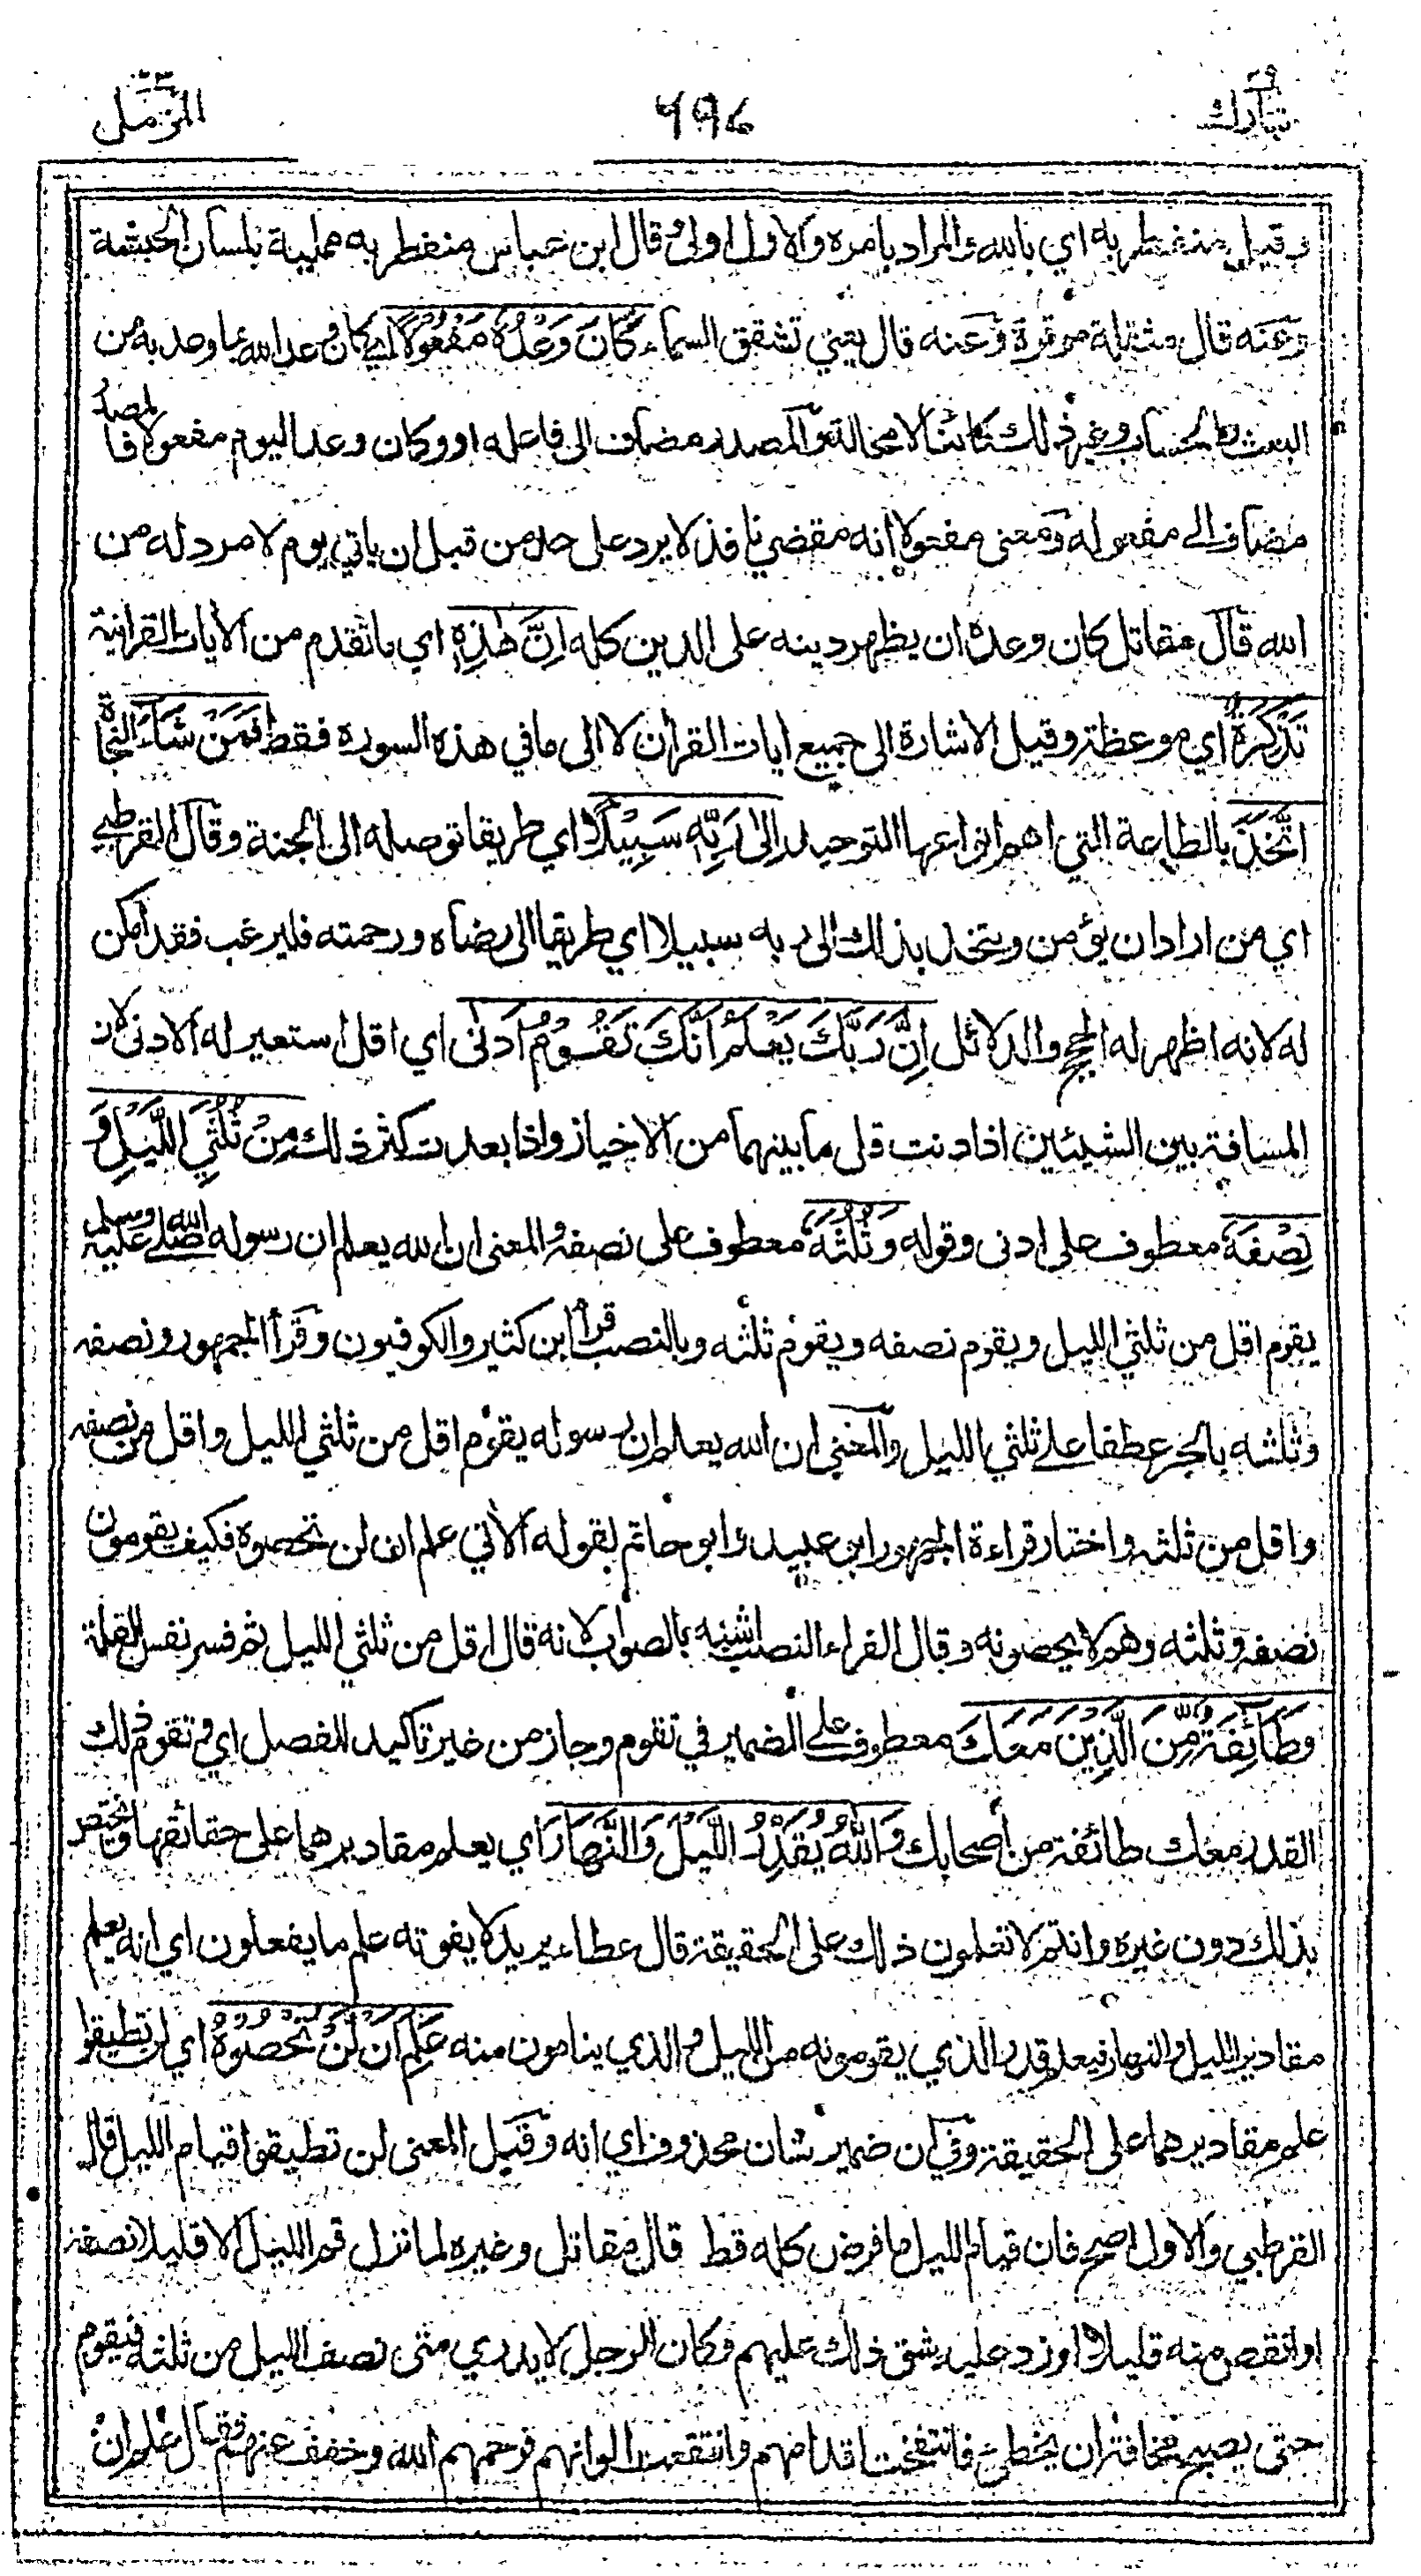 تبارك ٢٩
٦٩٤
المزمل ٧٣
وقيل منفطر به اي بالله والمراد بامره والاول اولى وقال ابن عباس منفطر به ممتلية بلسان الحبشة
وعنه قال مثقلة موقرة وعنه قال يعني تشقق السماء كَانَ وَعْدُهُ مَفْعُولًا اي كان وعد الله بما وعد به من
البعث والحساب وغير ذلك كائنا لا محالة والمصدر مضاف الى فاعله او وكان وعد اليوم مفعولا فالمصدر
مضاف الى مفعوله ومعنى مفعولا انه مقضي نافذ لا يرد على حد من قبل ان ياتي يوم لا مرد له من
الله قال مقاتل كان وعده ان يظهر دينه على الدين كله اِنَّ هٰذِهٖ اي ما تقدم من الايات القرانية
تَذْكِرَةٌ اي موعظة وقيل الاشارة الى جميع ايات القران لا الى ما في هذه السورة فقط فَمَنْ شَآءَ النجاة
اتَّخَذَ بالطاعة التي اهم انواعها التوحيد اِلٰى رَبِّهٖ سَبِيْلًا اي طريقا توصله الى الجنة وقال القرطبي
اي من اراد ان يؤمن ويتخذ بذلك الى ربه سبيلا اي طريقا الى رضاه ورحمته فليرغب فقد امكن
له لانه اظهر له الحجج والدلائل اِنَّ رَبَّكَ يَعْلَمُ اَنَّكَ تَقُوْمُ اَدْنٰى اي اقل استعير له الادنى لان
المسافة بين الشيئين اذا دنت قل ما بينهما من الاحياز واذا بعدت كثر ذلك مِنْ ثُلُثَيِ اللَّيْلِ وَ
نِصْفَهٗ معطوف على ادنى وقوله وَثُلُثَهٗ معطوف على نصفه والمعنى ان الله يعلم ان رسوله صلى الله عليه وسلم
يقوم اقل من ثلثي الليل ويقوم نصفه ويقوم ثلثه وبالنصب قرأ ابن كثير والكوفيون وقرأ الجمهور ونصفه
وثلثه بالجر عطفا على ثلثي الليل والمعنى ان الله يعلم ان رسوله يقوم اقل من ثلثي الليل واقل من نصفه
واقل من ثلثه واختار قراءة الجمهور ابو عبيد وابو حاتم لقوله الاتي علم ان لن تحصوه فكيف يقومون
نصفه وثلثه وهم لا يحصونه وقال الفراء النصب اشبه بالصواب لانه قال اقل من ثلثي الليل ثم فسر نفس القلة
وَطَآئِفَةٌ مِّنَ الَّذِيْنَ مَعَكَ معطوف على الضمير في تقوم وجاز من غير تاكيد للفصل اي وتقوم ذلك
القدر معك طائفة من اصحابك وَاللّٰهُ يُقَدِّرُ اللَّيْلَ وَالنَّهَارَ اي يعلم مقاديرهما على حقائقها ويختص
بذلك دون غيره وانتم لا تعلمون ذلك على الحقيقة قال عطاء يريد لا يفوته علم ما يفعلون اي انه يعلم
مقادير الليل والنهار فيعلم قدر الذي يقومونه من الليل والذي ينامون منه عَلِمَ اَنْ لَّنْ تُحْصُوْهُ اي لن تطيقوا
علم مقاديرهما على الحقيقة وفي ان ضمير شان محذوف اي انه وقيل المعنى لن تطيقوا قيام الليل قال
القرطبي والاول اصح فان قيام الليل ما فرض كله قط قال مقاتل وغيره لما نزل قم الليل الا قليلا نصفه
او انقص منه قليلا او زد عليه شق ذلك عليهم فكان الرجل لا يدري متى نصف الليل من ثلثه فيقوم
حتى يصبح مخافة ان يخطئ فانتفخت اقدامهم وانتقعت الوانهم فرحمهم الله وخفف عنهم فقال علم ان